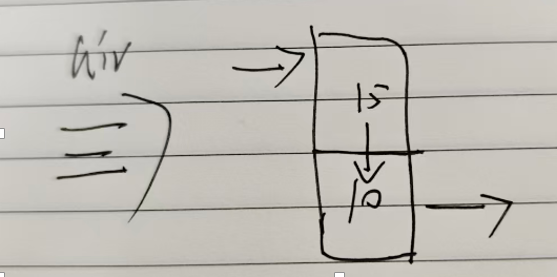 air
15
10